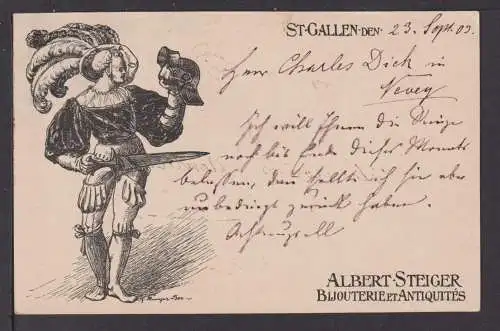 ST·GALLEN·DEN· 23. Sept. 03.
Herr Charles Dick in
Vevey
Ich will Ihnen die Ringe
noch bis Ende dieses Monats
belassen, dann sollte ich sie aber
unbedingt zurück haben.
Achtungsvoll
ALBERT·STEIGER
BIJOUTERIE ET ANTIQUITÉS